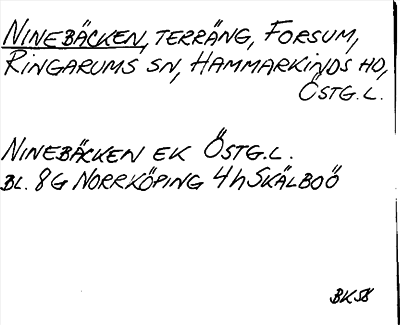 NINEBÄCKEN, TERRÄNG, FORSUM,
RINGARUMS SN, HAMMARKINDS HD,
ÖSTG. L.
NINEBÄCKEN EK ÖSTG. L.
BL. 8G NORRKÖPING 4h SKÄLBOÖ
BK58